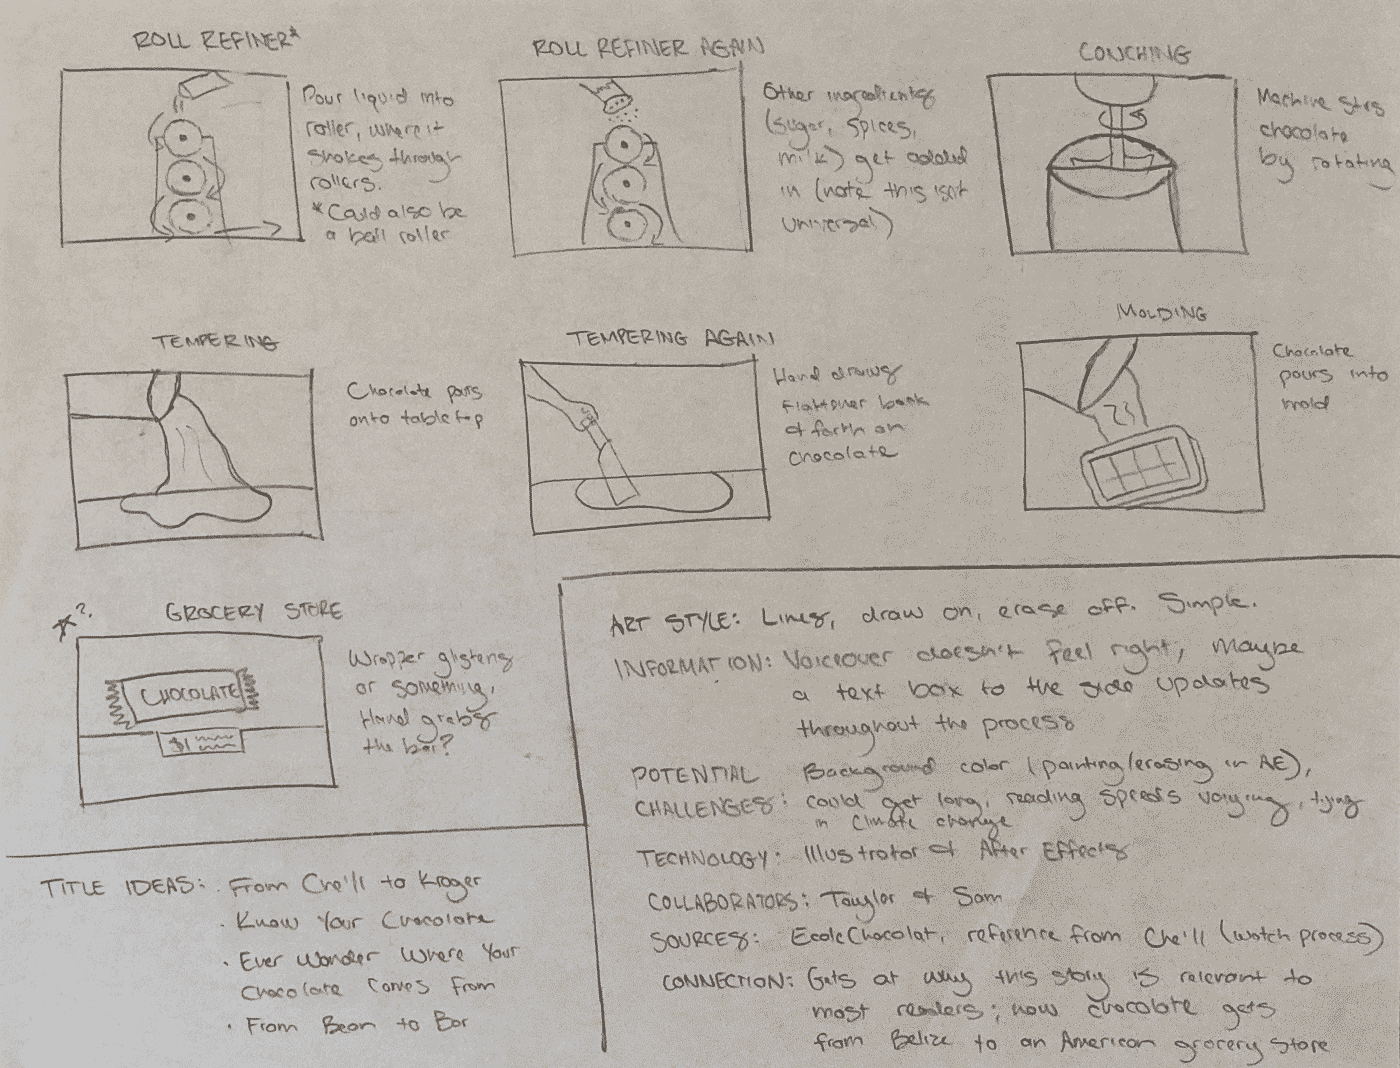 ROLL REFINER*
Pour liquid into
roller, where it
shakes through
rollers.
*Could also be
a ball roller
ROLL REFINER AGAIN
Other ingredients
(sugar, spices,
milk) get added
in (note this isn't
universal)
CONCHING
Machine stirs
chocolate
by rotating
TEMPERING
Chocolate pours
onto tabletop
TEMPERING AGAIN
Hand draws
back
& forth on
chocolate
MOLDING
Chocolate
pours into
mold
*?
GROCERY STORE
CHOCOLATE
$1
Wrapper glistens
or something,
Hand grabs
the bar?
TITLE IDEAS: · From Che'il to Kroger
· Know Your Chocolate
· Ever Wonder Where Your
Chocolate Comes From
· From Bean to Bar
ART STYLE: Lines, draw on, erase off. Simple.
INFORMATION: Voiceover doesn't feel right, maybe
a text box to the side updates
throughout the process
POTENTIAL Background color (painting/erasing in AE),
CHALLENGES: could get long, reading speeds varying, tying
in climate change
TECHNOLOGY: Illustrator & After Effects
COLLABORATORS: Taylor & Sam
SOURCES: EcoleChocolat, reference from Che'il (watch process)
CONNECTION: Gets at why this story is relevant to
most readers; how chocolate gets
from Belize to an American grocery store